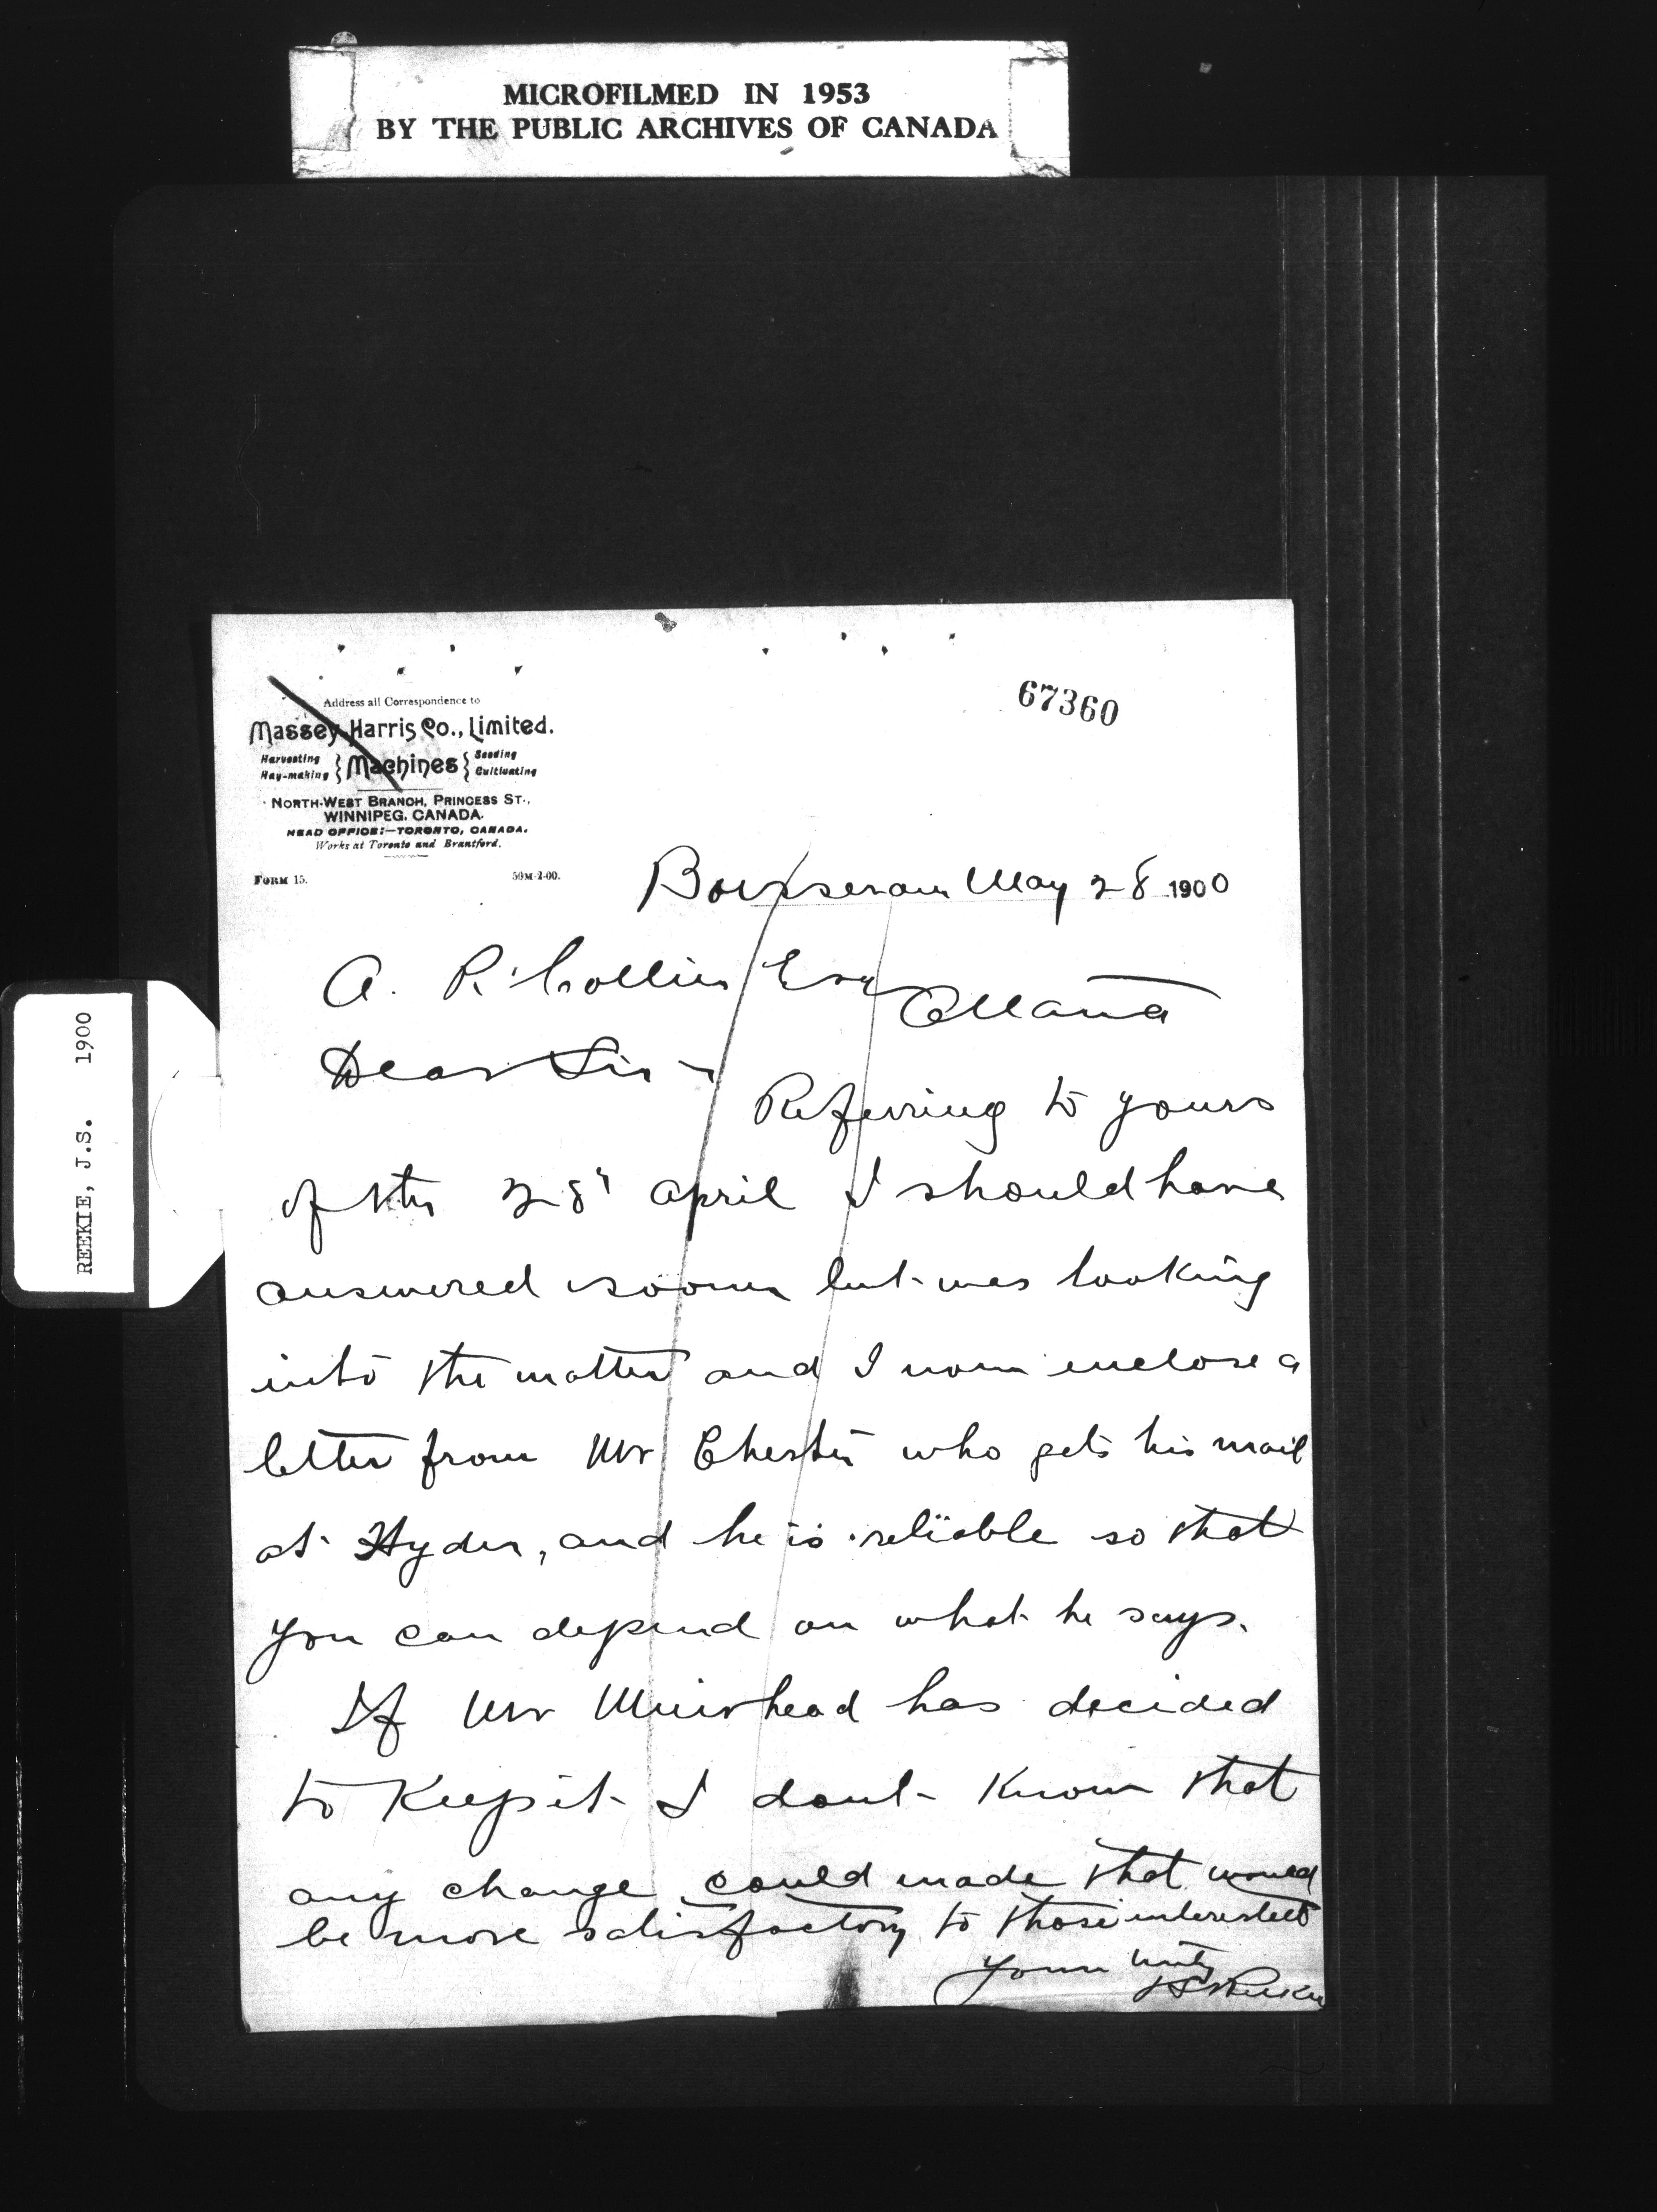 MICROFILMED IN 1953
BY THE PUBLIC ARCHIVES OF CANADA
REEKIE, J.S. 1900
67360
Address all Correspondence to
Massey-Harris Co., Limited.
Harvesting Hay-making } Machines { Seeding Cultivating
NORTH-WEST BRANCH, PRINCESS ST.,
WINNIPEG, CANADA.
HEAD OFFICE:—TORONTO, CANADA.
Works at Toronto and Brantford.
FORM 15. 50M-2-00.
Boissevain May 28 1900
A. P. Collier Esq
Ottawa
Dear Sir -
Referring to yours
of the 28" April I should have
answered sooner but was looking
into the matter and I now enclose a
letter from Mr Chester who gets his mail
at Hyder, and he is reliable so that
you can depend on what he says.
If Mr Muirhead has decided
to Keep it I dont Know that
any change could made that would
be more satisfactory to those interested
Yours truly
JS Reekie